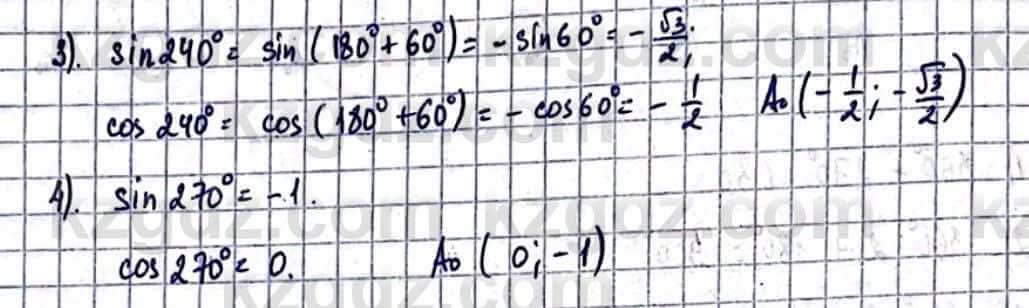 3). sin240°= sin(180°+60°)= -sin60°= -√3/2;
cos 240°= cos(180°+60°)= -cos60°= -1/2 A₀(-1/2; -√3/2)
4). sin 270°= -1.
cos 270°= 0. A₀ (0; -1)